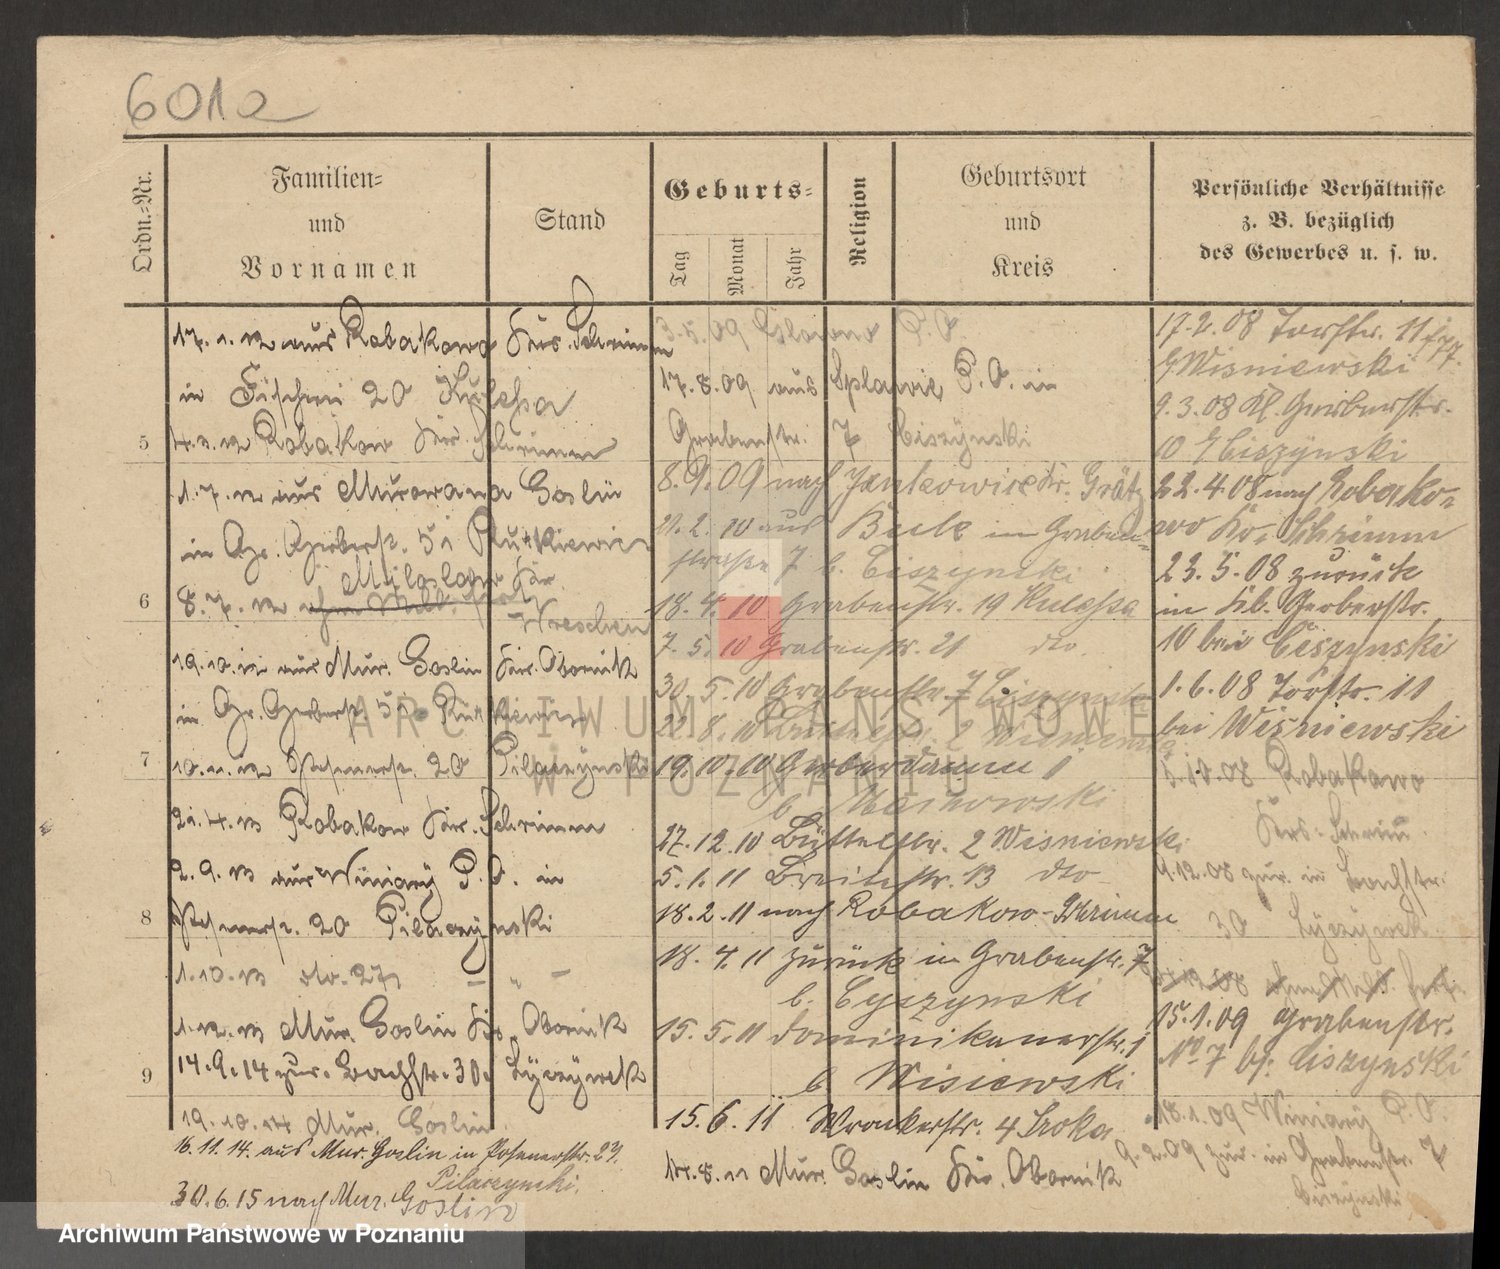 601a
Ordn.-Nr.
Familien-
und
Vornamen
Stand
Geburts-
Tag
Monat
Jahr
Religion
Geburtsort
und
Kreis
Persönliche Verhältnisse
z. B. bezüglich
des Gewerbes u. s. w.
17. 1. 12 aus Robakowo Krs. Schrimm
in Fischerei 20 Kulessa
5
Robakow Kr. Schrimm
1. 7. 12 aus Murowana Goslin
in Gr. Gerberst. 51
Miloslaw Kr.
6
8. 7. 12
Wreschen
19. 10. 12 aus Mur. Goslin Kr. Obornik
in Gr. Gerberst. 51
7
10. 11. 12 Posenerst. 20 Pilaczynski
21. 4. 13 Robakow Kr. Schrimm
2. 9. 13 aus Winiary P. O. in
8
Posenerst. 20 Pilaczynski
1. 10. 13 27
1. 12. 13 Mur. Goslin Kr. Obornik
9
14. 9. 14 zur. Bachstr. 30. Lyczywek
19. 10. 14 Mur. Goslin
16. 11. 14. aus Mur. Goslin in Posenerstr. 27.
Pilaczynski.
30. 6. 15 nach Mur. Goslin
3. 5. 09 P. O.
17. 8. 09 aus Splawie P. O. in
Grabenstr. 7 Ciszynski
8. 9. 09 nach Jankowice Kr. Grätz
21. 2. 10 aus Buk in Graben-
strasse 7 b. Ciszynski
18. 4. 10 Grabenstr. 19 Kulessa
7. 5. 10 Grabenstr. 21 dto.
30. 5. 10 Grabenstr. 7 Ciszynski
22. 8. 10 2
19. 10. 10 Gerberdamm 1
b.
27. 12. 10 Büttelstr. 2 Wisniewski
5. 1. 11 Breitestr. 13 dto
18. 2. 11 nach Robakow-Schrimm
18. 4. 11 zurück in Grabenstr. 7
b. Cyszynski
15. 5. 11 Dominikanerstr. 1
b. Wisiewski
15. 6. 11 Wronkerstr. 4 Sroka
Mur. Goslin Kr. Obornik
17. 2. 08 Torstr. 11 f. 77.
Wisniewski
9. 3. 08 Kl. Gerberstr.
10 Ciszynski
22. 4. 08 nach Robako-
wo Kr. Schrimm
23. 5. 08 zurück
in Kl. Gerberstr.
10 bei Ciszynski
1. 6. 08 Torstr. 11
bei Wisniewski
5. 10. 08 Robakowo
Krs. Schrim
4. 12. 08 zur. in Bachstr.
30 Lyczywek
15. 1. 09 Grabenstr.
No 7 bei Ciszynski
18. 1. 09 Winiary P. O.
9. 2. 09 zur. in Grabenstr. 7
Ciszynski
ARCHIWUM PAŃSTWOWE
W POZNANIU
Archiwum Państwowe w Poznaniu